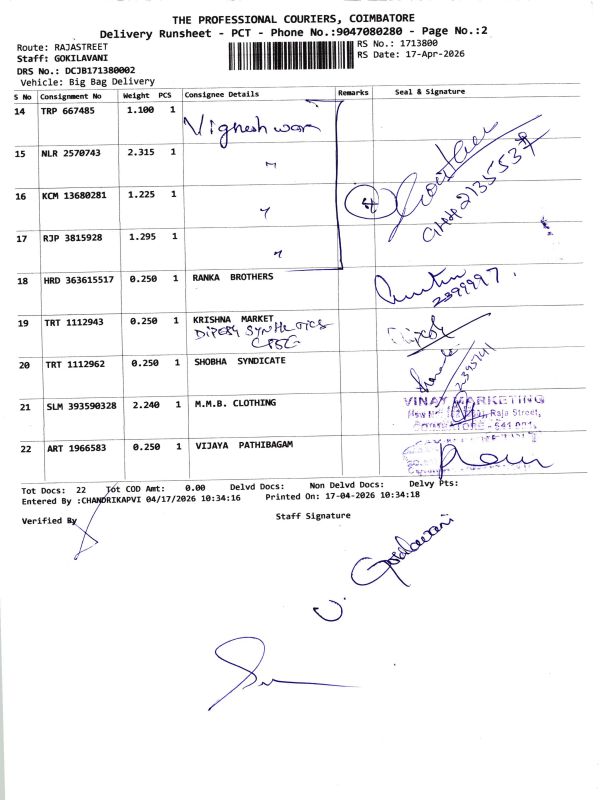 THE PROFESSIONAL COURIERS, COIMBATORE
Delivery Runsheet - PCT - Phone No.:9047080280 - Page No.:2
Route: RAJASTREET
Staff: GOKILAVANI
DRS No.: DCJB171380002
Vehicle: Big Bag Delivery
RS No.: 1713800
RS Date: 17-Apr-2026
S No Consignment No Weight PCS Consignee Details Remarks Seal & Signature
14 TRP 667485 1.100 1 Vigneshwar
15 NLR 2570743 2.315 1 "
16 KCM 13680281 1.225 1 " 4
17 RJP 3815928 1.295 1 "
18 HRD 363615517 0.250 1 RANKA BROTHERS 2399997
19 TRT 1112943 0.250 1 KRISHNA MARKET
20 TRT 1112962 0.250 1 SHOBHA SYNDICATE
21 SLM 393590328 2.240 1 M.M.B. CLOTHING VINAY MARKETING
Raja Street,
22 ART 1966583 0.250 1 VIJAYA PATHIBAGAM
Tot Docs: 22 Tot COD Amt: 0.00 Delvd Docs: Non Delvd Docs: Delvy Pts:
Entered By :CHANDRIKAPVI 04/17/2026 10:34:16 Printed On: 17-04-2026 10:34:18
Verified By Staff Signature